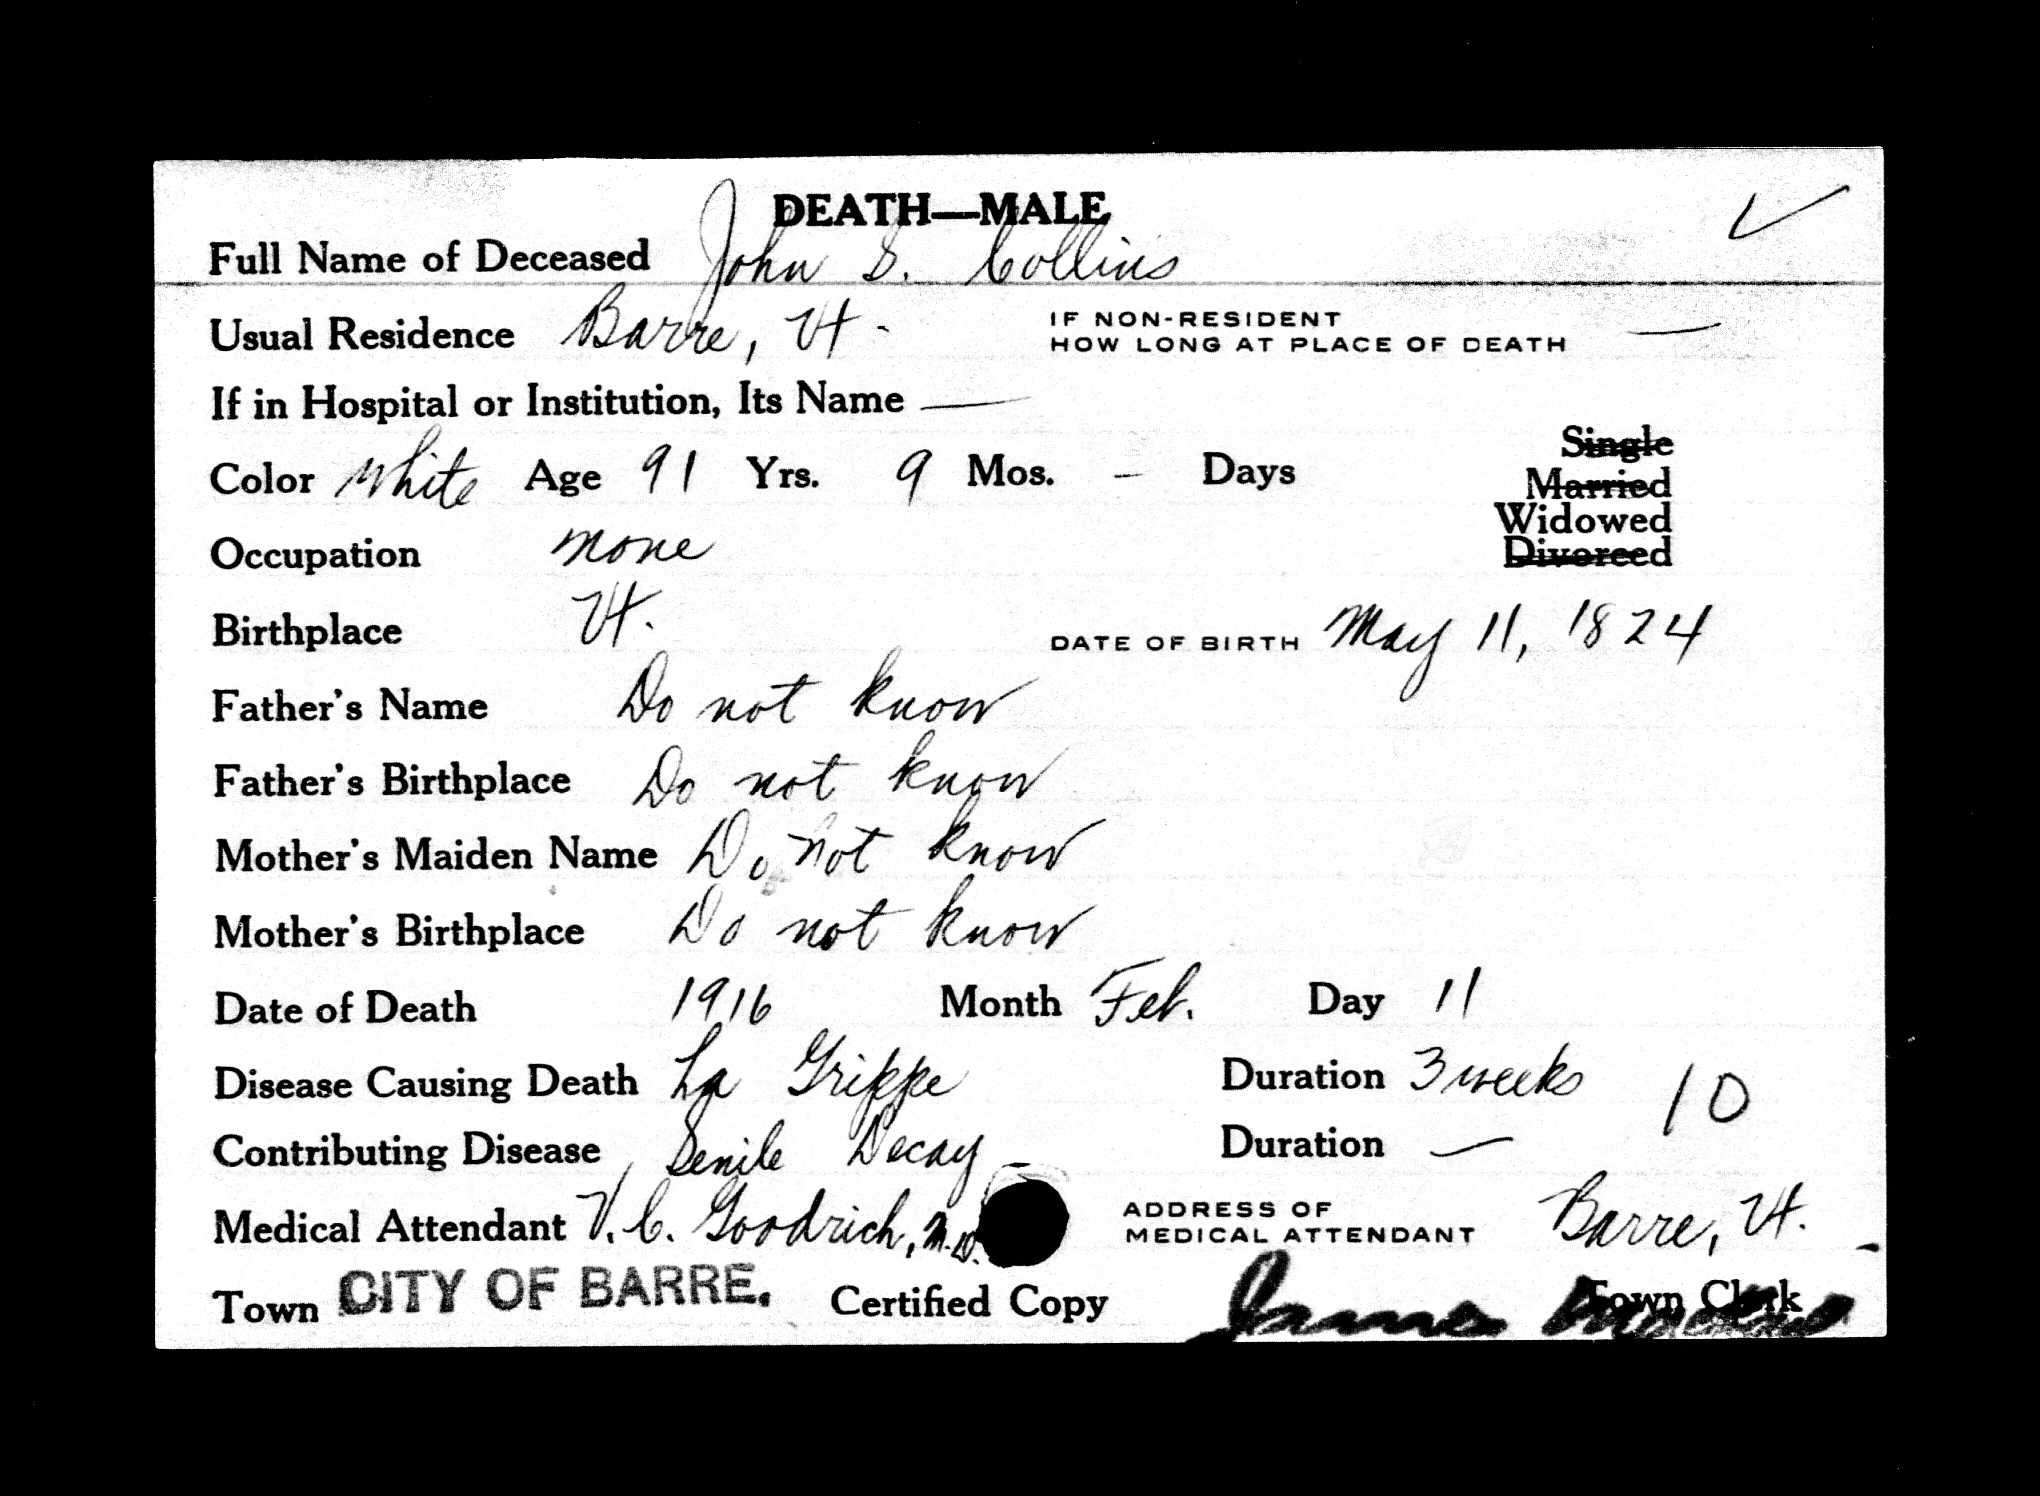 DEATH—MALE
Full Name of Deceased John S. Collins
Usual Residence Barre, Vt. IF NON-RESIDENT HOW LONG AT PLACE OF DEATH —
If in Hospital or Institution, Its Name —
Single
Color White Age 91 Yrs. 9 Mos. - Days
Married
Widowed
Occupation None
Divorced
Birthplace Vt. DATE OF BIRTH May 11, 1824
Father's Name Do not know
Father's Birthplace Do not know
Mother's Maiden Name Do not know
Mother's Birthplace Do not know
Date of Death 1916 Month Feb. Day 11
Disease Causing Death La Grippe Duration 3 weeks 10
Contributing Disease Senile Decay Duration —
Medical Attendant V. C. Goodrich, M.D. ADDRESS OF MEDICAL ATTENDANT Barre, Vt.
Town CITY OF BARRE. Certified Copy James Town Clerk